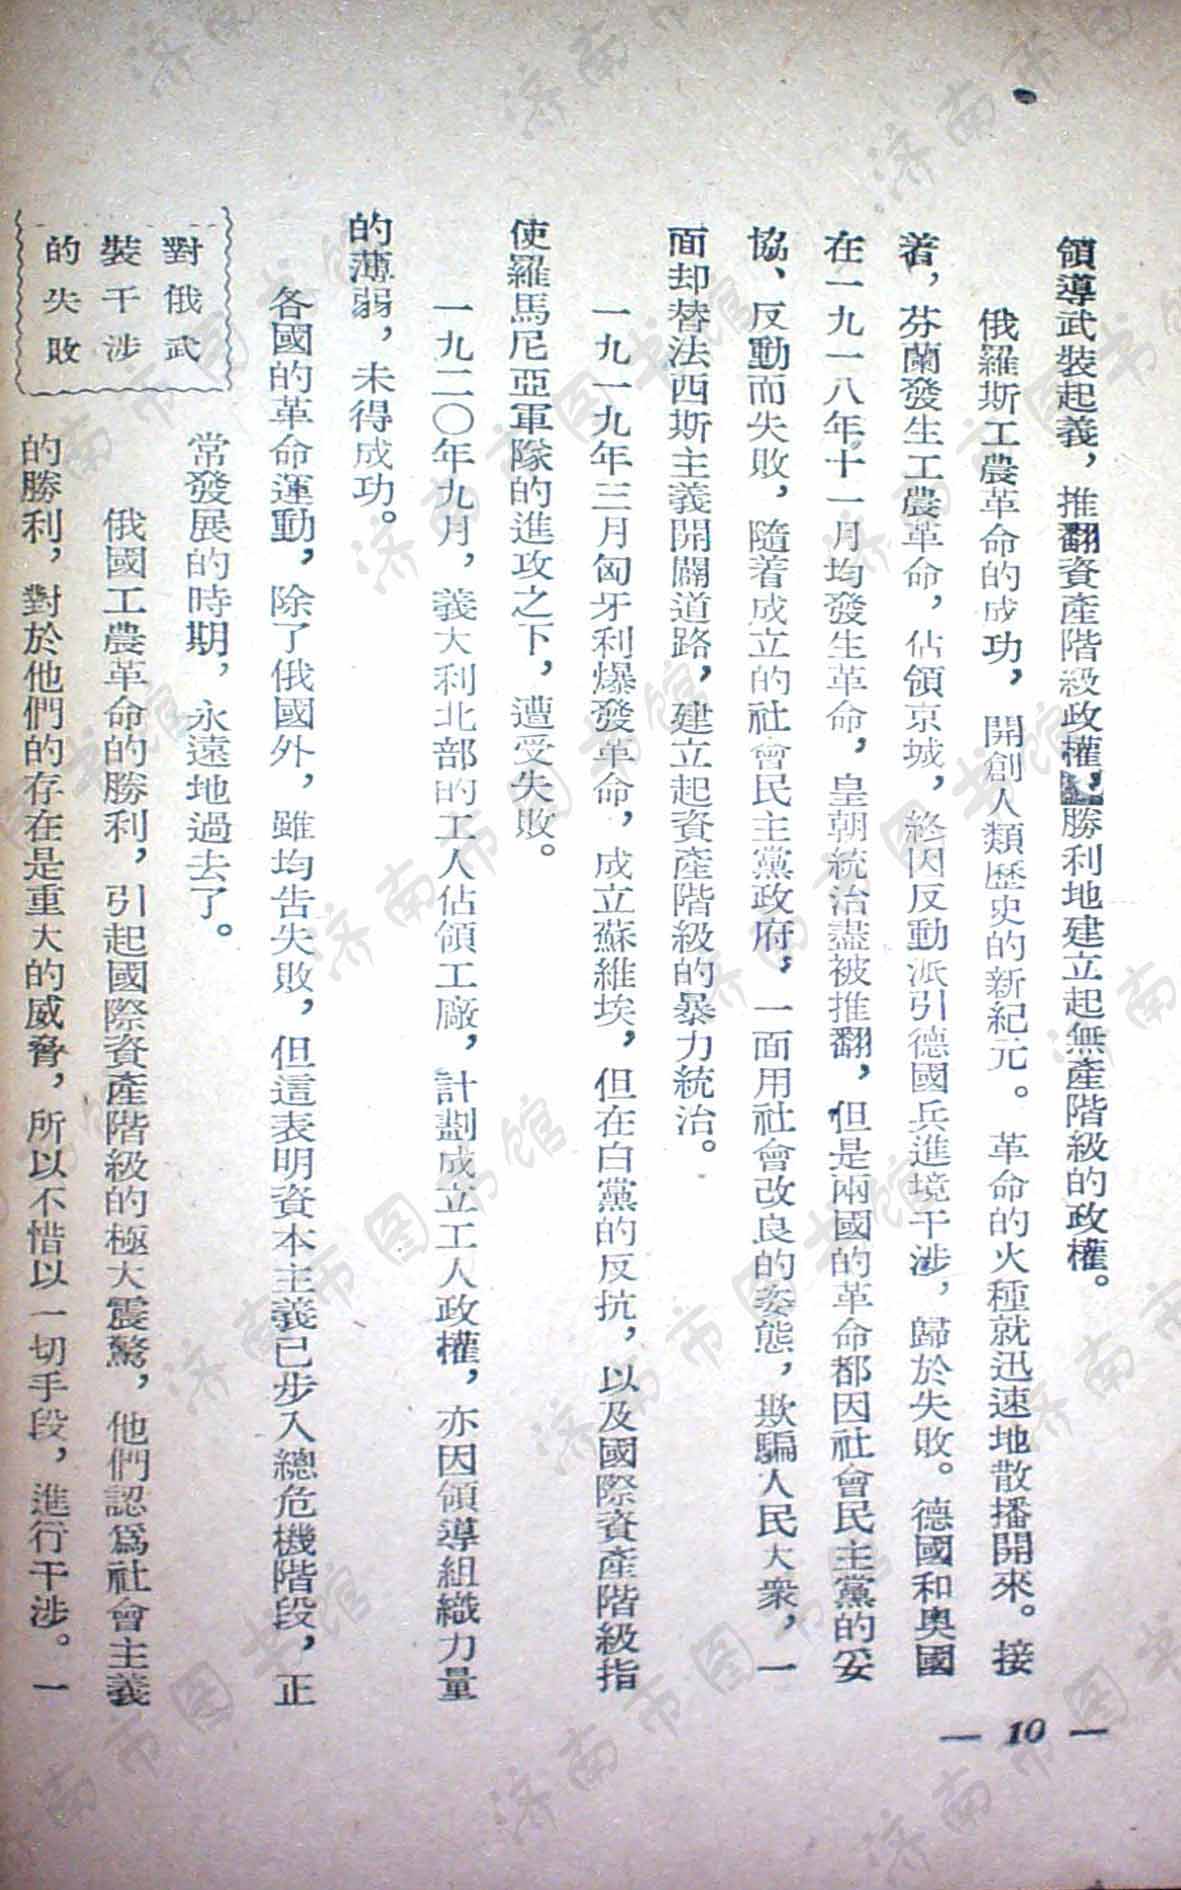 領導武裝起義，推翻資產階級政權，勝利地建立起無產階級的政權。
俄羅斯工農革命的成功，開創人類歷史的新紀元。革命的火種就迅速地散播開來。接
着，芬蘭發生工農革命，佔領京城，終因反動派引德國兵進境干涉，歸於失敗。德國和奧國
在一九一八年十一月均發生革命，皇朝統治盡被推翻，但是兩國的革命都因社會民主黨的妥
協、反動而失敗，隨着成立的社會民主黨政府，一面用社會改良的姿態，欺騙人民大衆，一
面却替法西斯主義開闢道路，建立起資產階級的暴力統治。
一九一九年三月匈牙利爆發革命，成立蘇維埃，但在白黨的反抗，以及國際資產階級指
使羅馬尼亞軍隊的進攻之下，遭受失敗。
一九二〇年九月，義大利北部的工人佔領工廠，計劃成立工人政權，亦因領導組織力量
的薄弱，未得成功。
各國的革命運動，除了俄國外，雖均告失敗，但這表明資本主義已步入總危機階段，正
常發展的時期，永遠地過去了。
對俄武
裝干涉
的失敗
俄國工農革命的勝利，引起國際資產階級的極大震驚，他們認爲社會主義
的勝利，對於他們的存在是重大的威脅，所以不惜以一切手段，進行干涉。一
— 10 —
济南市图书馆